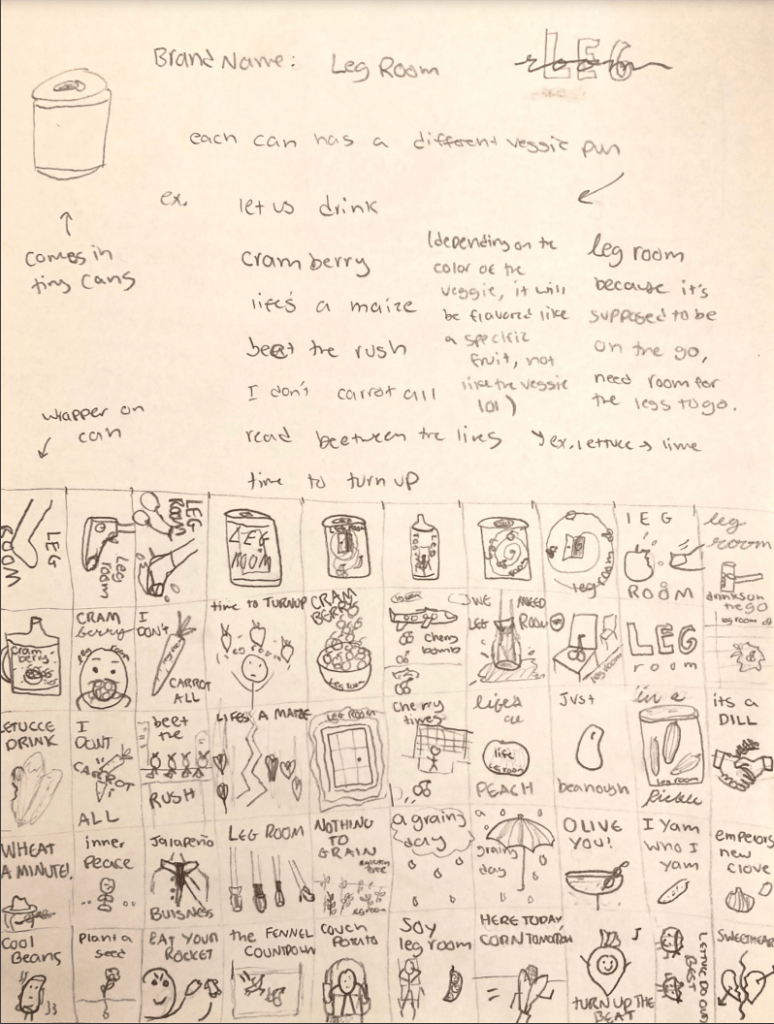 Brand Name: Leg Room
LEG
room
each can has a different veggie pun
ex.
comes in
tiny cans
let us drink
cramberry
life's a maize
beet the rush
I don't carrot all
read beetween the lines
time to turn up
(depending on the
color of the
veggie, it will
be flavored like
a specific
fruit, not
like the veggie
lol)
ex. lettuce → lime
leg room
because it's
supposed to be
on the go,
need room for
the legs to go.
wrapper on
can
LEG
ROOM
Leg
room
LEG
ROOM
LEG
ROOM
LEG
ROOM
leg room
LEG
ROOM
leg
room
drinks on
the go
leg room
Cram
berry
CRAM
berry
leg room
I
DON'T
CARROT
ALL
time to TURNUP
leg room
CRAM
BERRY
LEG ROOM
cherry
bomb
WE
LEG
NEED
ROOM
leg room
LEG
room
LETUCCE
DRINK
I
DONT
CARROT
ALL
beet
the
RUSH
LIFES A MAZE
LEG ROOM
cherry
times
life's
a
life
leg room
PEACH
JUST
beanoush
in a
leg room
Pickle
its a
DILL
WHEAT
A MINUTE!
inner
Peace
Jalapeño
BUISNESS
LEG ROOM
NOTHING
TO
GRAIN
a grainy
day
a
grainy
day
OLIVE
YOU!
I Yam
who I
yam
emperors
new
clove
Cool
Beans
Plant a
seed
EAT YOUR
ROCKET
the FENNEL
COUNTDOWN
couch
Potato
SOY
leg room
HERE TODAY,
CORN TOMOTTOW
TURN UP THE
BEAT
LETTUCE DO OUR
BEST
SWEETHEART